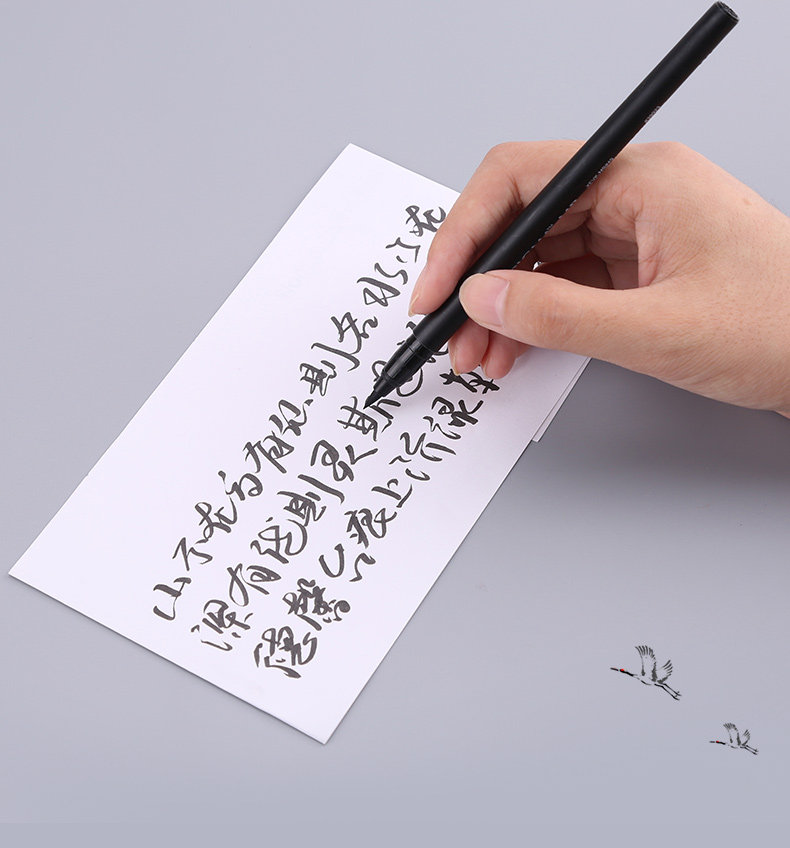 山不在高有仙则名水不在
深有龙则灵斯是
德馨苔痕上阶绿草